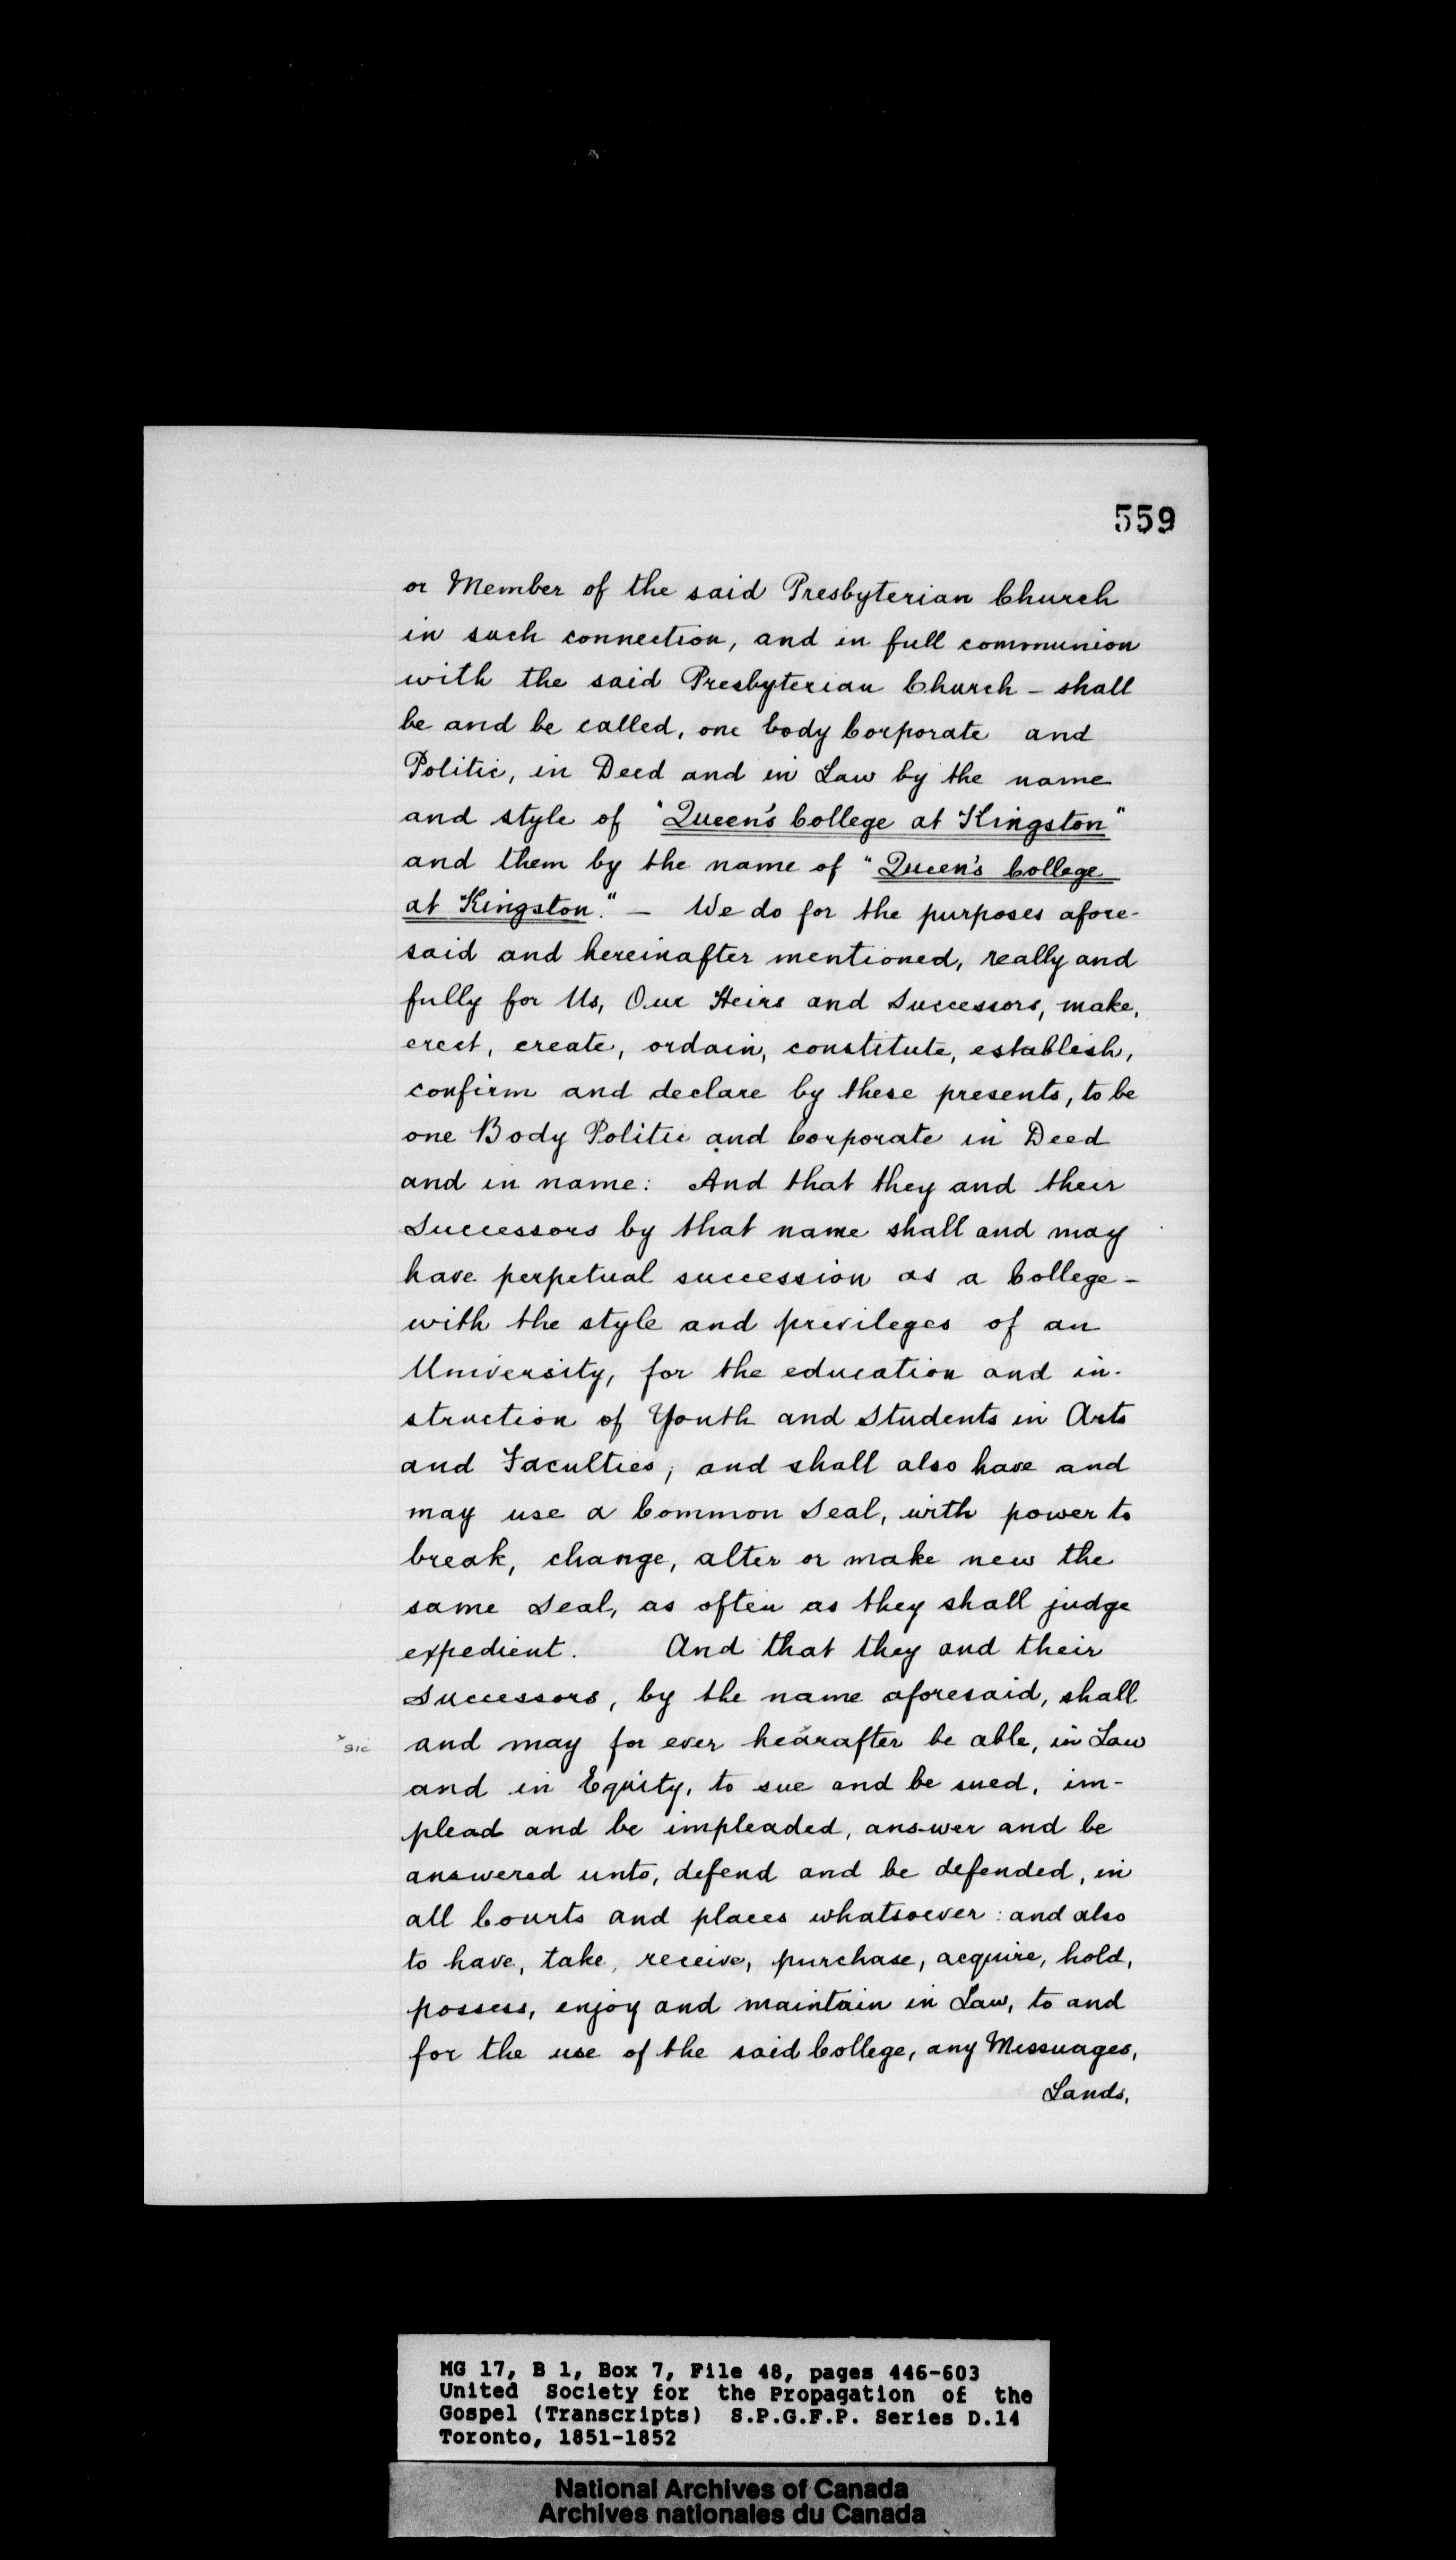 559
or Member of the said Presbyterian Church
in such connection, and in full communion
with the said Presbyterian Church – shall
be and be called, one body Corporate and
Politic, in Deed and in Law by the name
and style of "Queen's College at Kingston"
and them by the name of "Queen's College
at Kingston." – We do for the purposes afore-
said and hereinafter mentioned, really and
fully for Us, Our Heirs and Successors, make,
erect, create, ordain, constitute, establish,
confirm and declare by these presents, to be
one Body Politic and Corporate in Deed
and in name: And that they and their
Successors by that name shall and may
have perpetual succession as a College –
with the style and privileges of an
University, for the education and in-
struction of Youth and Students in Arts
and Faculties; and shall also have and
may use a Common Seal, with power to
break, change, alter or make new the
same Seal, as often as they shall judge
expedient. And that they and their
Successors, by the name aforesaid, shall
x sic and may for ever heàrafter be able, in Law
and in Equity, to sue and be sued, im-
plead and be impleaded, answer and be
answered unto, defend and be defended, in
all Courts and places whatsoever: and also
to have, take, receive, purchase, acquire, hold,
possess, enjoy and maintain in Law, to and
for the use of the said College, any Messuages,
Lands,
MG 17, B 1, Box 7, File 48, pages 446-603
United Society for the Propagation of the
Gospel (Transcripts) S.P.G.F.P. Series D.14
Toronto, 1851-1852
National Archives of Canada
Archives nationales du Canada